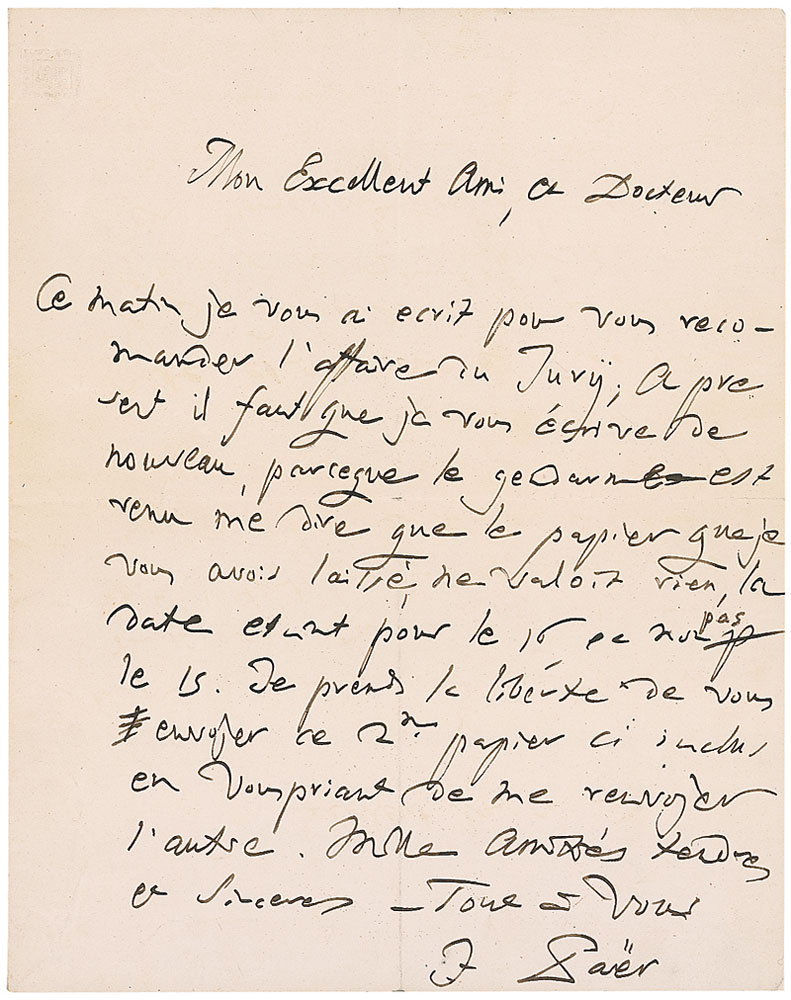 Mon Excellent Ami, et Docteur
Ce matin je vous ai ecrit pour vous reco-
mander l'affaire du Jurÿ; A pre
sent il faut que je vous écrive de
nouveau, parceque le gendarme est
venu me dire que le papier que je
vous avois laissé, ne valoit rien, la
date etant pour le 16 et non pas
le 15. Je prends la liberte de vous
envoyer ce 2me papier ci inclus
en vous priant de me renvoyer
l'autre. Mille Amitiés tendres
et sinceres - Tout à Vous
F Paër